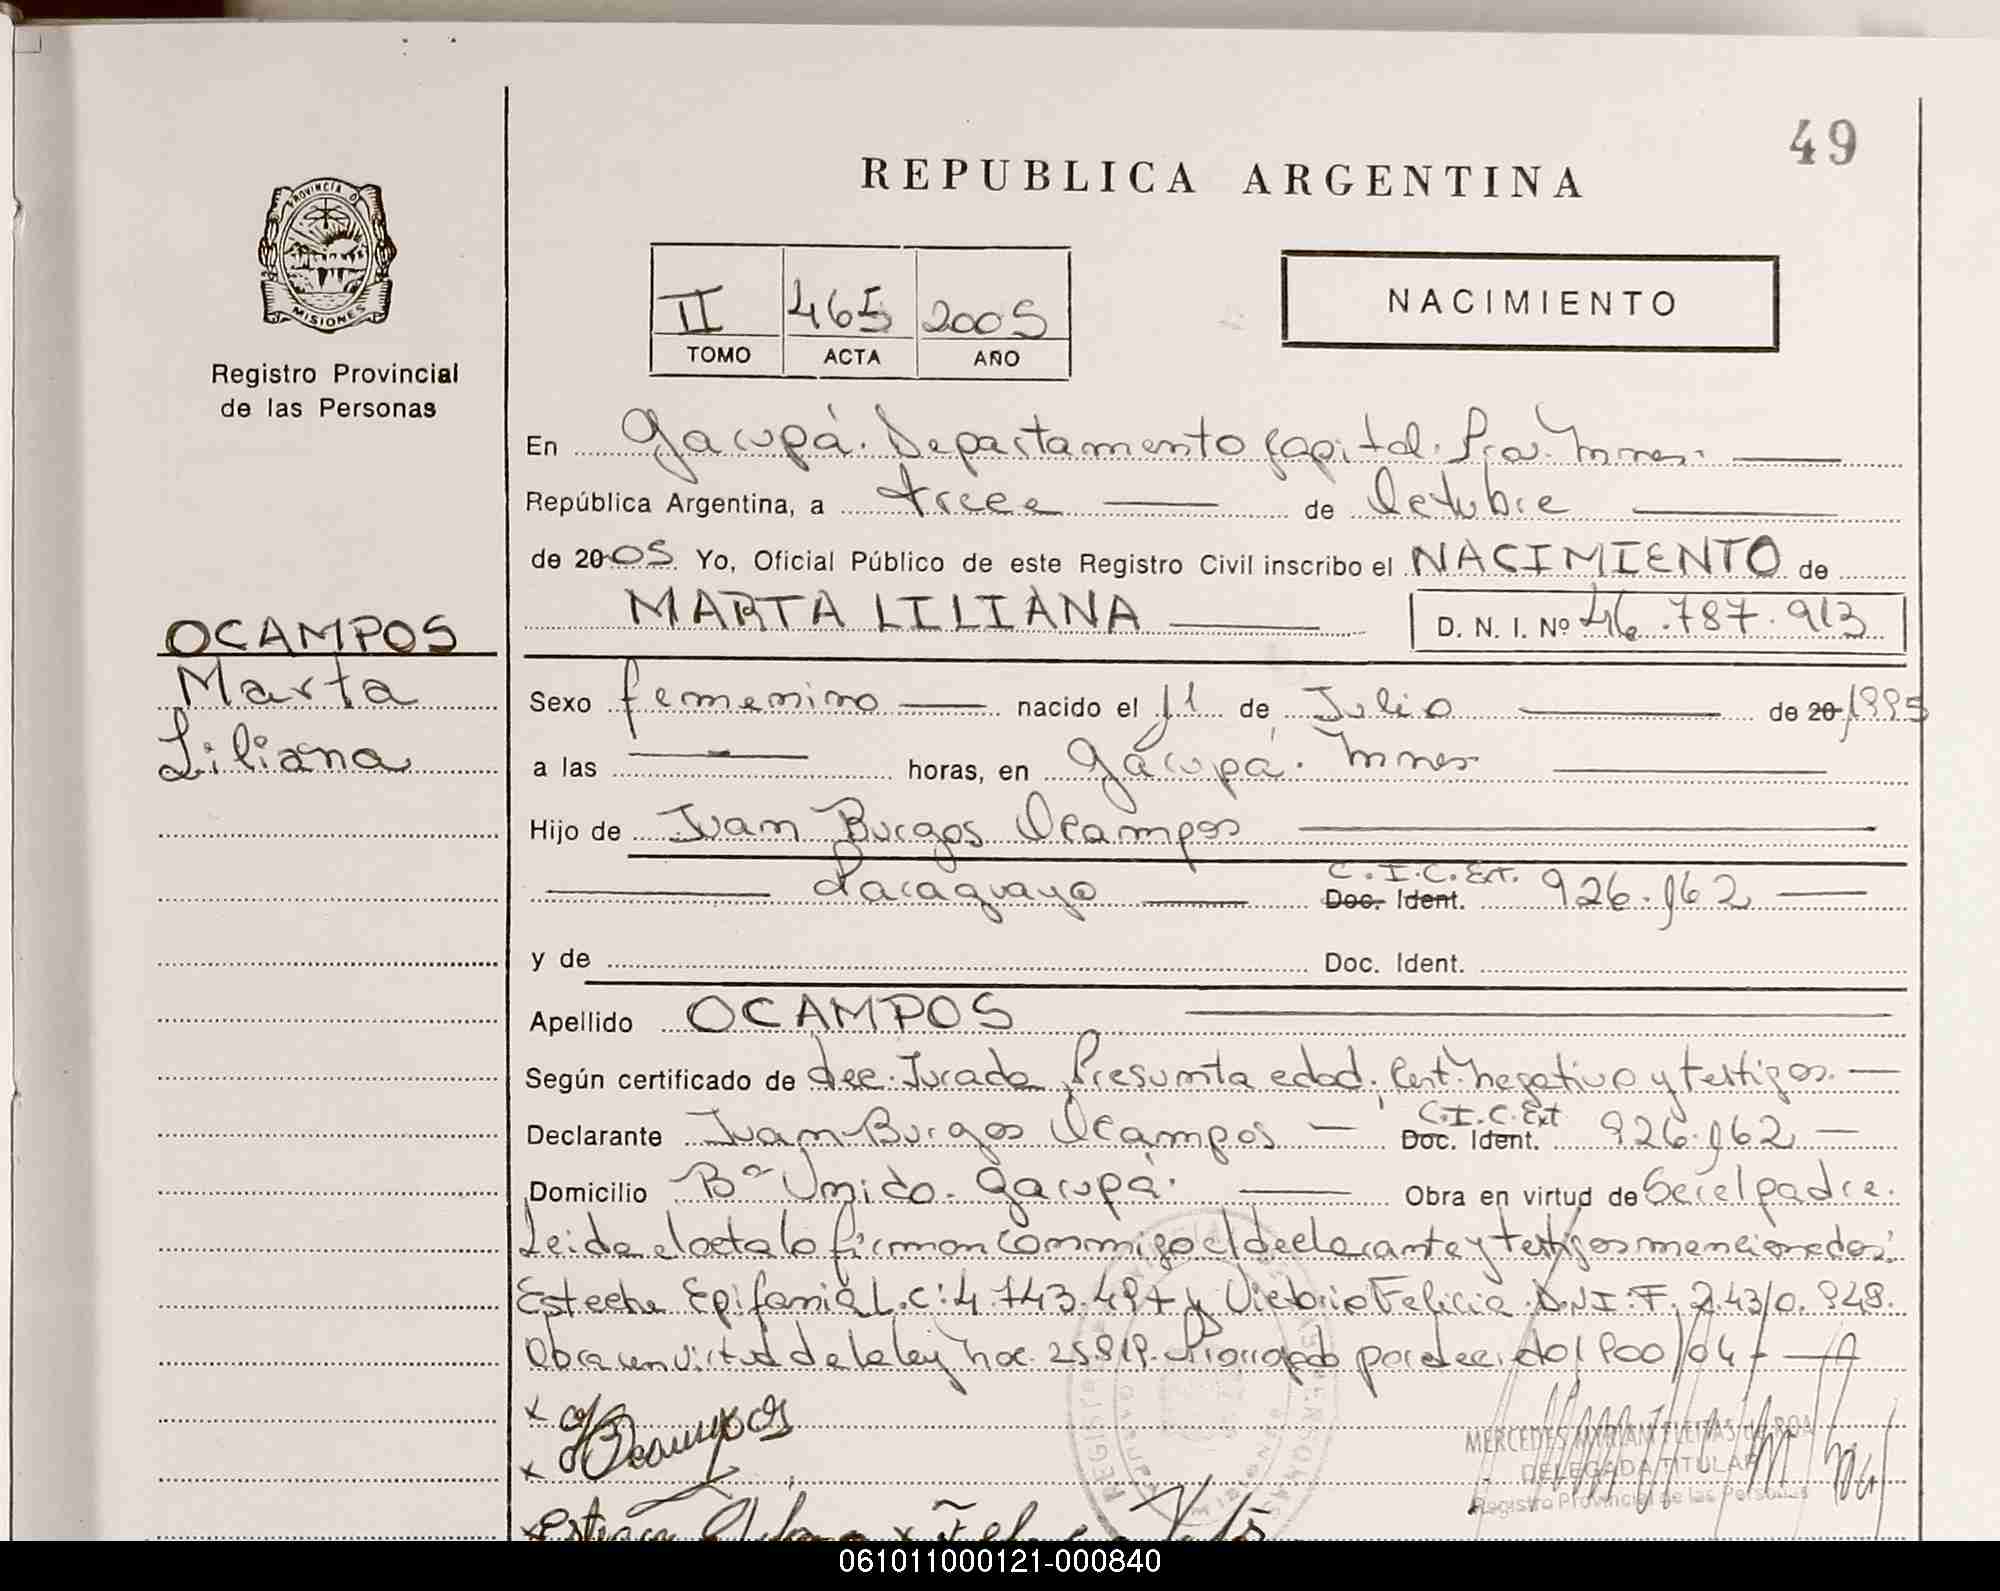 49
REPUBLICA ARGENTINA
PROVINCIA D
MISIONES
Registro Provincial
de las Personas
II 465 2005
TOMO ACTA AÑO
NACIMIENTO
En Garupá. Departamento Capital. Prov. Mnes.
República Argentina, a trece de Octubre
de 2005 Yo, Oficial Público de este Registro Civil inscribo el NACIMIENTO de
MARTA LILIANA D. N. I. Nº 46.787.913
OCAMPOS
Marta
Liliana
Sexo femenino nacido el 11 de Julio de 20 1995
a las horas, en Garupá. Mnes
Hijo de Juan Burgos Ocampos
Paraguayo C.I.C.Ext. Doc. Ident. 926.162
y de Doc. Ident.
Apellido OCAMPOS
Según certificado de dec. Jurada, Presunta edad, Cert. negativo y testigos.
Declarante Juan Burgos Ocampos C.I.C.Ext Doc. Ident. 926.162
Domicilio Bº Unido. Garupá. Obra en virtud de Ser el padre.
Leida el acta la firman conmigo el declarante y testigos mencionados:
Esteche Epifania L.C: 4.743.497 y Felicia D.N.I.F.
Obra en virtud de la ley nºc. 25.819. Prorrogado por decreto 1900/04
x
x Ocampos
MERCEDES MYRIAN FLEITAS de ROA
DELEGADA TITULAR
Registro Provincial de las Personas
061011000121-000840